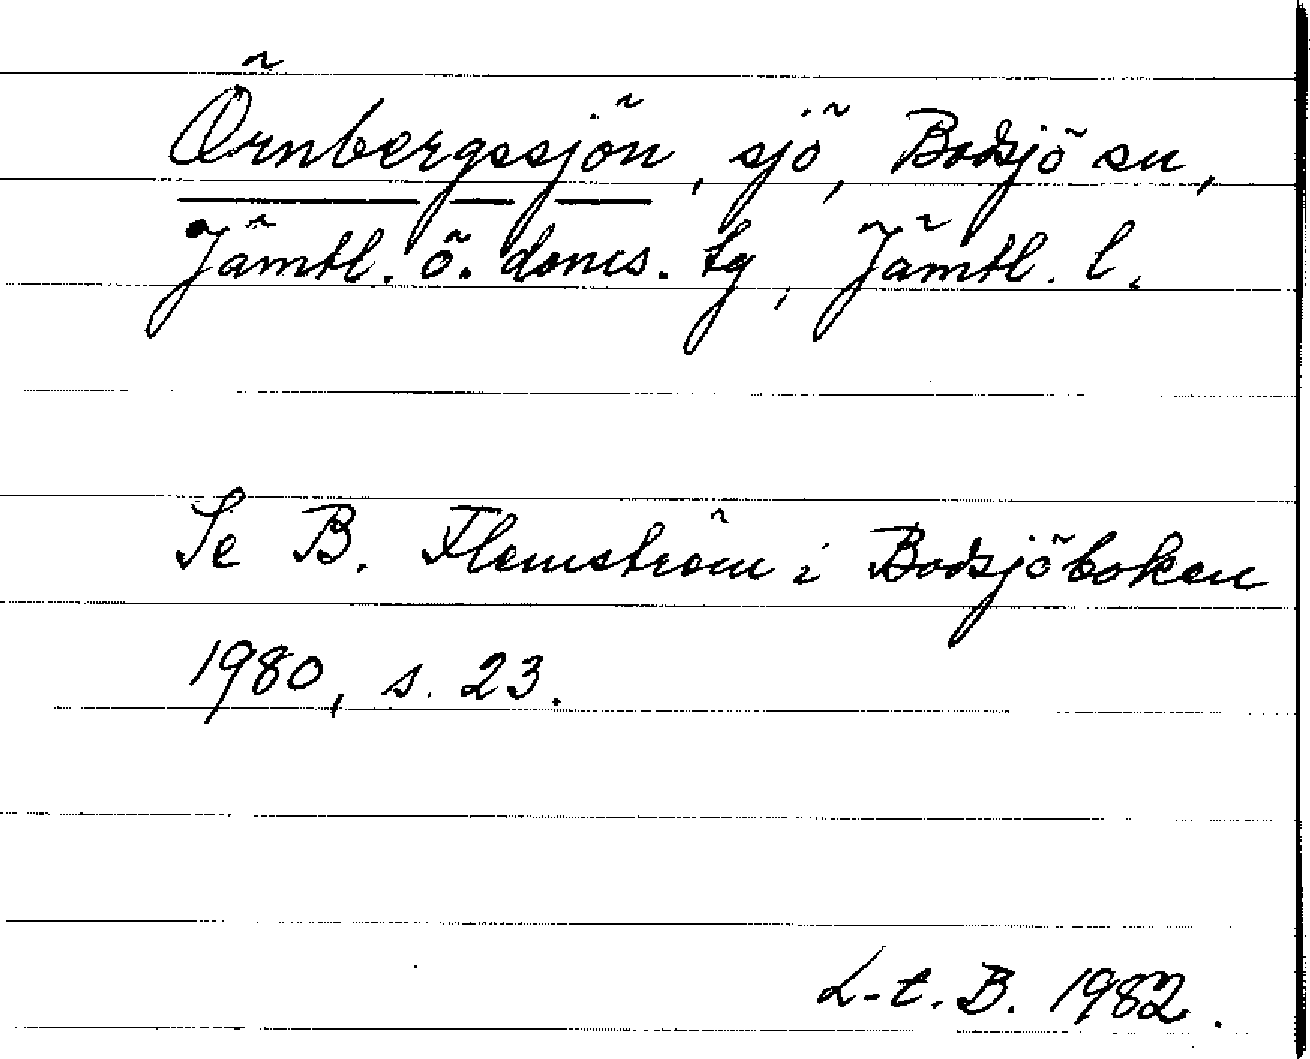 Örnbergssjön, sjö, Bodsjö sn,
Jämtl. ö. doms. tg, Jämtl. l.
Se B. Flemström i Bodsjöboken
1980, s. 23.
L-t. B. 1982.